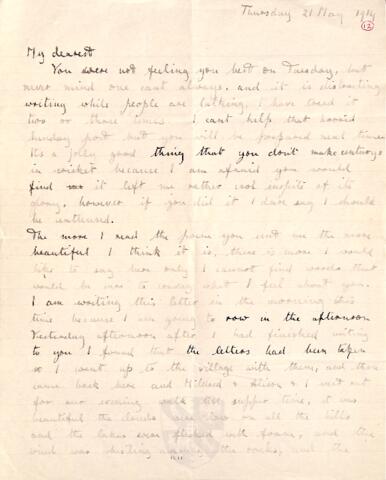 Thursday 21 May 1914
12
My dearest
You were not feeling you best on Tuesday, but
never mind one cant always, and it is distracting
writing while people are talking, I have tried it
two or three times. I cant help that horrid
Sunday post but you will be prepared next time
Its a jolly good thing that you don't make centurys
in cricket because I am afraid you would
find it left me rather cool inspite of its
glory, however if you did it I dare say I should
be enthused.
The more I read the poem you sent me the more
beautiful I think it is, there is more I would
like to say here only I cannot find words that
would be nice to convey what I feel about you.
I am writing this letter in the morning this
time because I am going to row in the afternoon
Yesterday afternoon after I had finished writing
to you I found that the letters had been taken
so I went up to the village with them, and then
came back here and Mildred & Alison & I went out
for our evening walk till supper time, it was
beautiful the clouds were low on all the hills
and the lakes were flecked with foam, and the
wind was whistling among the rocks, and the